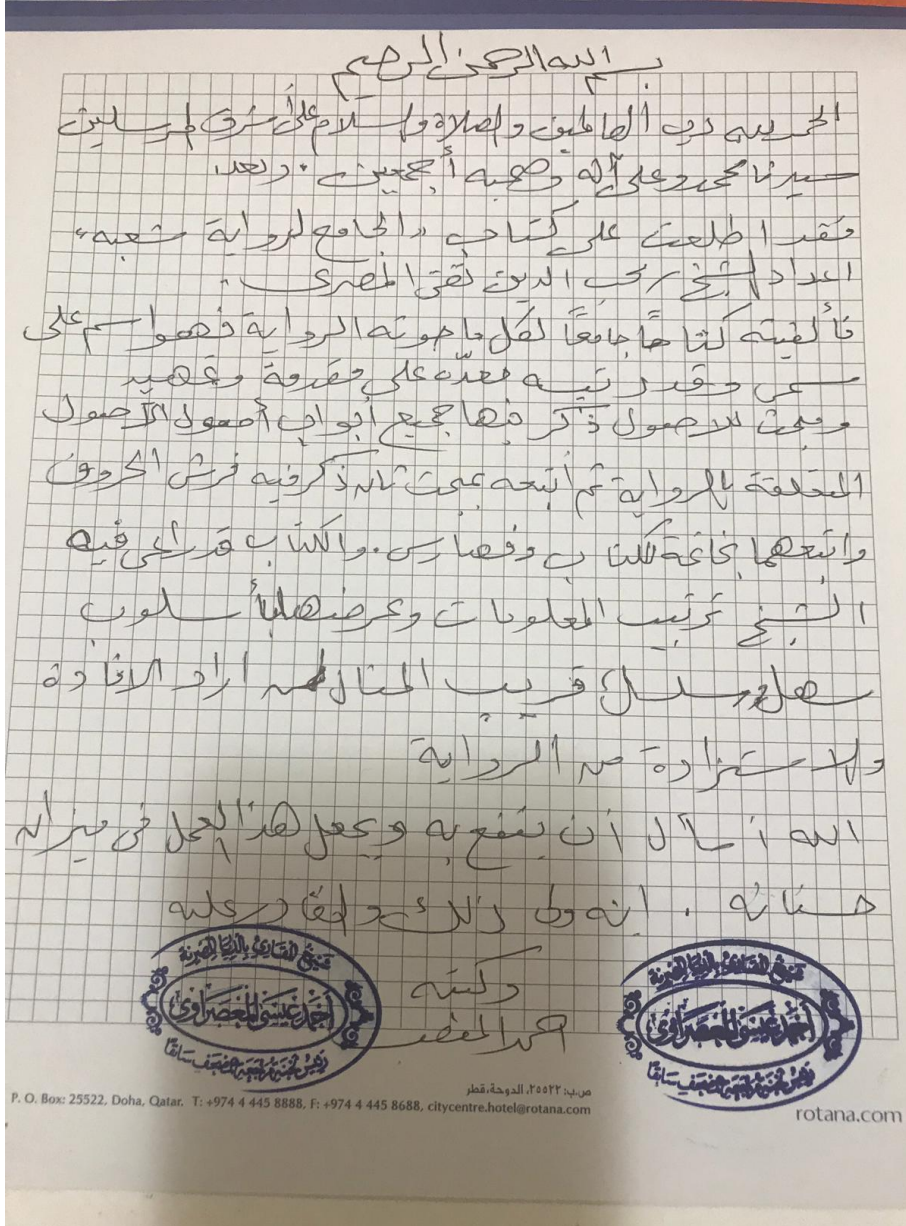 بسم الله الرحمن الرحيم
الحمد لله رب العالمين والصلاة والسلام على أشرف المرسلين
سيدنا محمد وعلى آله وصحبه أجمعين . وبعد
فقد اطلعت على كتاب "الجامع لرواية شعبه"
اعداد الشيخ / محب الدين تقي المصرى .
فألفيته كتابًا جامعًا لكل ما حوته الرواية فهو اسم على
مسمى وقد رتبه معدّه على مقدمة وتمهيد
ومبحث للاصول ذكر فيها جميع أبواب أصول الأصول
المتعلقة بالرواية ثم أتبعه بمبحث ثان ذكر فيه فرش الحروف
واتبعهما بخاتمة للكتاب وفهارس . والكتاب قد راعى فيه
الشيخ ترتيب المعلومات وعرضها بأسلوب
سهل وسلس قريب المنال لمن أراد الافادة
والاستزادة من الرواية
الله أسأل أن ينفع به ويجعل هذا العمل فى ميزان
حسناته . إنه ولى ذلك والقادر عليه
وكتبه
احمد المعصراوى
شيخ المقارئ بالديار المصرية
أحمد عيسى المعصراوى
رئيس لجنة مراجعة المصحف سابقا
شيخ المقارئ بالديار المصرية
أحمد عيسى المعصراوى
رئيس لجنة مراجعة المصحف سابقا
ص.ب: ٢٥٥٢٢، الدوحة، قطر
P. O. Box: 25522, Doha, Qatar. T: +974 4 445 8888, F: +974 4 445 8688, citycentre.hotel@rotana.com
rotana.com